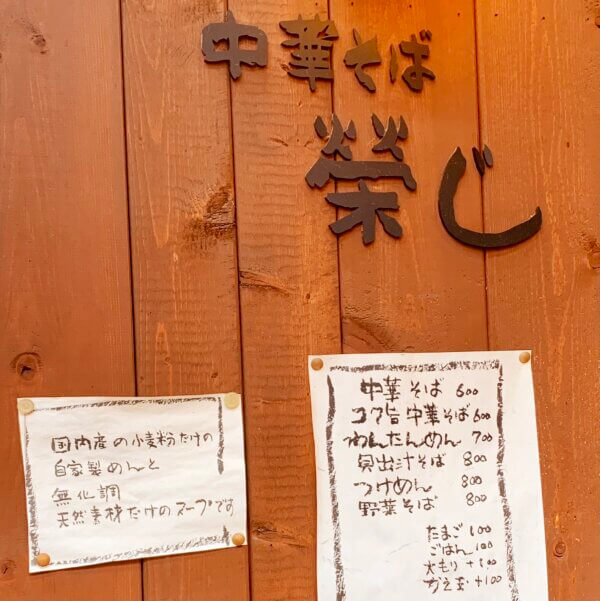 中華そば
榮じ
国内産の小麦粉だけの
自家製めんと
無化調
天然素材だけのスープです
中華そば 600
コク旨中華そば 600
わんたんめん 700
貝出汁そば 800
つけめん 800
野菜そば 800
たまご 100
ごはん 100
大もり +100
かえ玉 +100